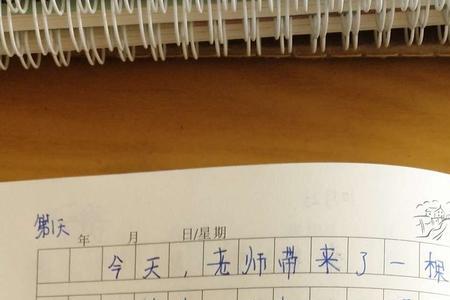 第1天
年 月 日/星期
今天,老师带来了一棵